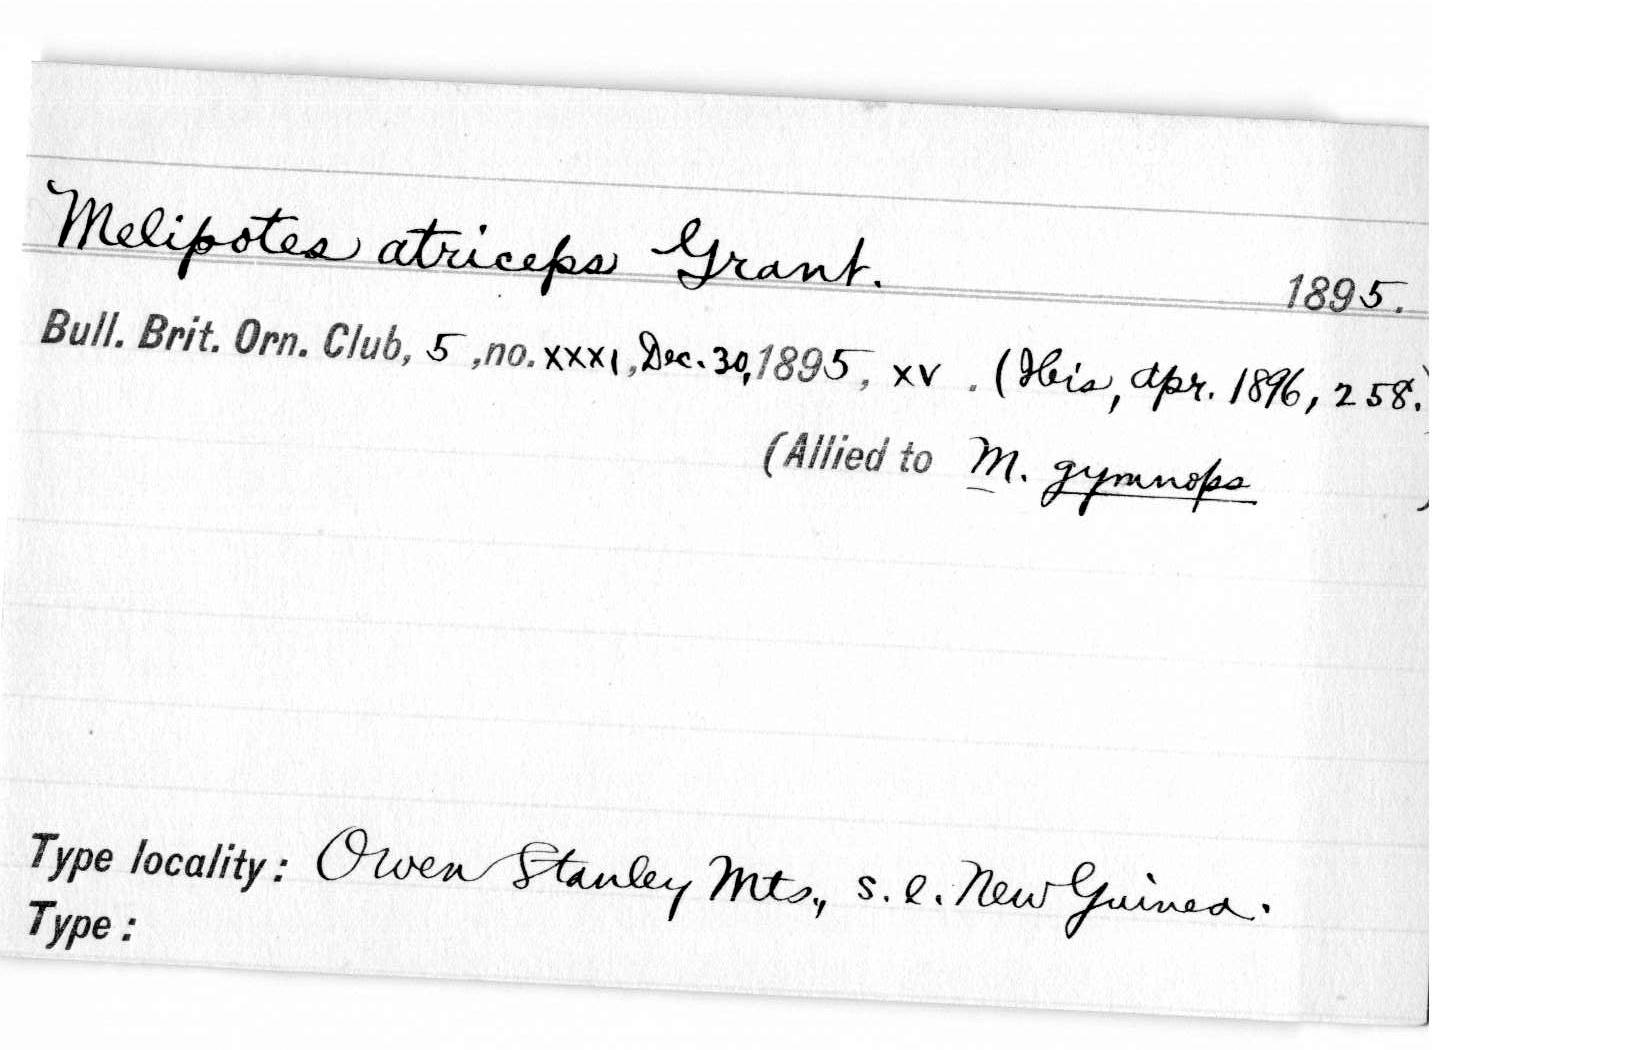 Melipotes atriceps Grant. 1895.
Bull. Brit. Orn. Club, 5, no. xxxi, Dec. 30, 1895, xv. (Ibis, Apr. 1896, 258.)
(Allied to M. gymnops)
Type locality: Owen Stanley Mts., s.e. New Guinea.
Type: